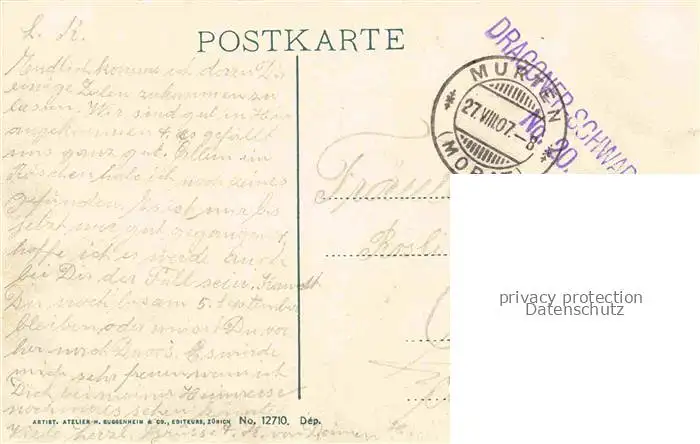 L. K.
POSTKARTE
Endlich komme ich dazu Dir
einige Zeilen zukommen zu
lassen. Wir sind gut in
angekommen & es gefällt
uns ganz gut. Ein
habe ich noch keines
gefunden. Es ist mir bis
jetzt sehr gut gegangen &
hoffe ich es werde auch
bei Dir der Fall sein. Kannst
Du noch bis am 5. September
bleiben oder musst Du vor
her nach Es würde
mich sehr freuen wenn ich
Dich bei meiner Heimreise
noch sehen könnte
Viele herzl. Grüsse
DRAGONER-SCHWAD
No. 20.
MURTEN
27.VIII.07.-8
(MORAT
Fräul
Rosli
ARTIST. ATELIER H. GUGGENHEIM & CO., EDITEURS, ZÜRICH No. 12710. Dép.
privacy protection
Datenschutz